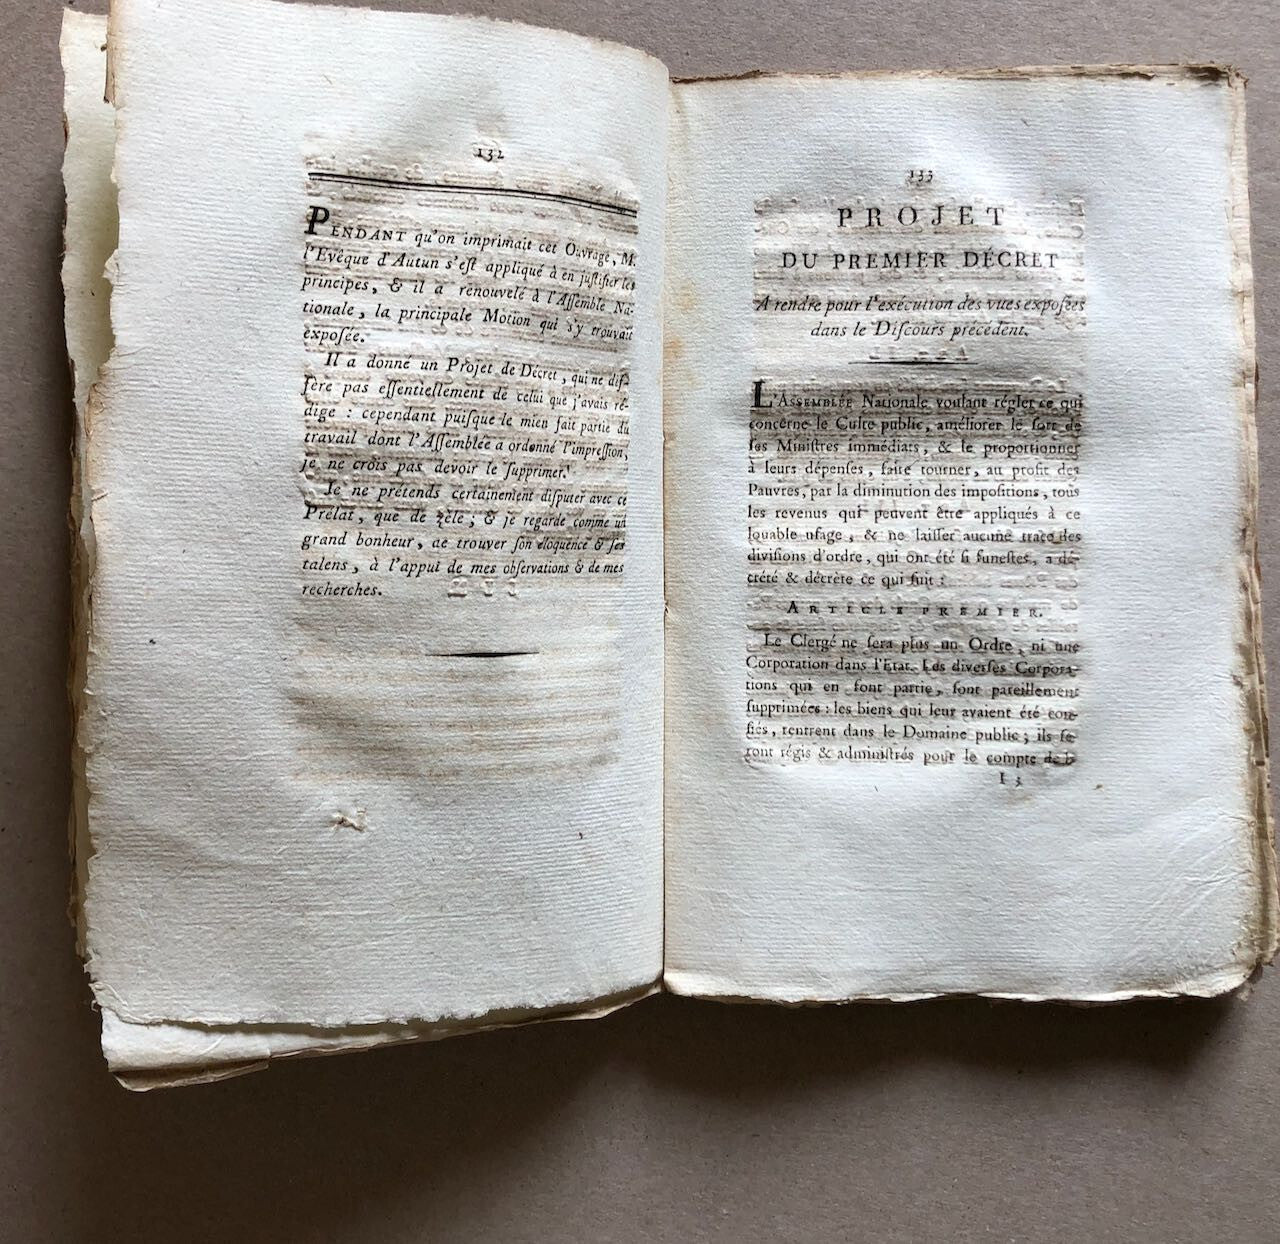 132
PENDANT qu'on imprimait cet Ouvrage, M.
l'Evêque d'Autun s'eſt appliqué à en juſtifier les
principes, & il a renouvelé à l'Aſſemble Na-
tionale, la principale Motion qui s'y trouvait
expoſée.
Il a donné un Projet de Décret, qui ne dif-
fère pas eſſentiellement de celui que j'avais ré-
digé : cependant puiſque le mien fait partie du
travail dont l'Aſſemblée a ordonné l'impreſſion,
je ne crois pas devoir le ſupprimer.
Je ne prétends certainement diſputer avec ce
Prélat, que de zèle ; & je regarde comme un
grand bonheur, de trouver ſon éloquence & ſes
talens, à l'appui de mes obſervations & de mes
recherches.
133
PROJET
DU PREMIER DÉCRET
A rendre pour l'exécution des vues expoſées
dans le Diſcours précédent.
L'ASSEMBLÉE Nationale voulant régler ce qui
concerne le Culte public, améliorer le ſort de
ſes Miniſtres immédiats, & le proportionner
à leurs dépenſes, faire tourner, au profit des
Pauvres, par la diminution des impoſitions, tous
les revenus qui peuvent être appliqués à ce
louable uſage, & ne laiſſer aucune trace des
diviſions d'ordre, qui ont été ſi funeſtes, a dé-
crété & décrète ce qui ſuit :
ARTICLE PREMIER.
Le Clergé ne ſera plus un Ordre, ni une
Corporation dans l'Etat. Les diverſes Corpora-
tions qui en font partie, ſont pareillement
ſupprimées : les biens qui leur avaient été con-
fiés, rentrent dans le Domaine public ; ils ſe-
ront régis & adminiſtrés pour le compte de la
I 3